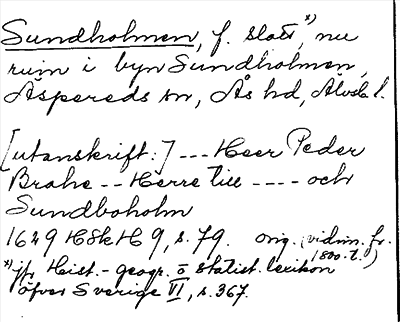 Sundholmen, f. slott,*) nu
ruin i byn Sundholmen,
Äspereds sn, Ås hd, Älvsb l.
[utanskrift:] --- Heer Peder
Brahe -- Herre till ---- och
Sundboholm
1629 HSkH 9, s. 79. orig. (vidim. fr.
1800-t.)
*) jfr Hist.-geogr. o statist. lexikon
öfver Sverige VI, s. 367.